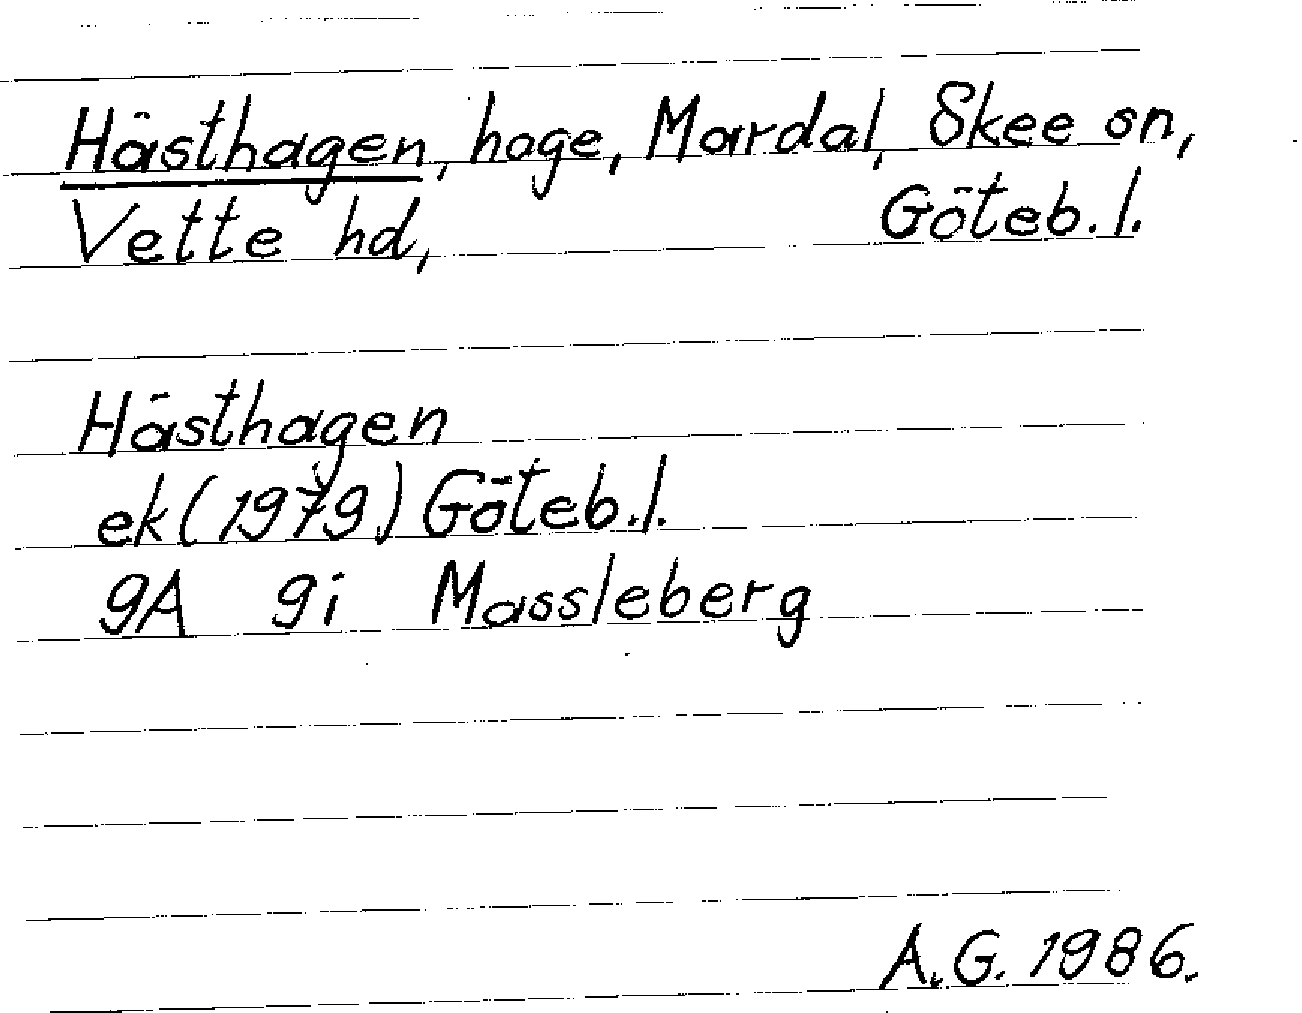 Hästhagen, hage, Mardal, Skee sn,
Vette hd, Göteb. l.
Hästhagen
ek (1979) Göteb. l.
9A 9i Massleberg
A.G. 1986.